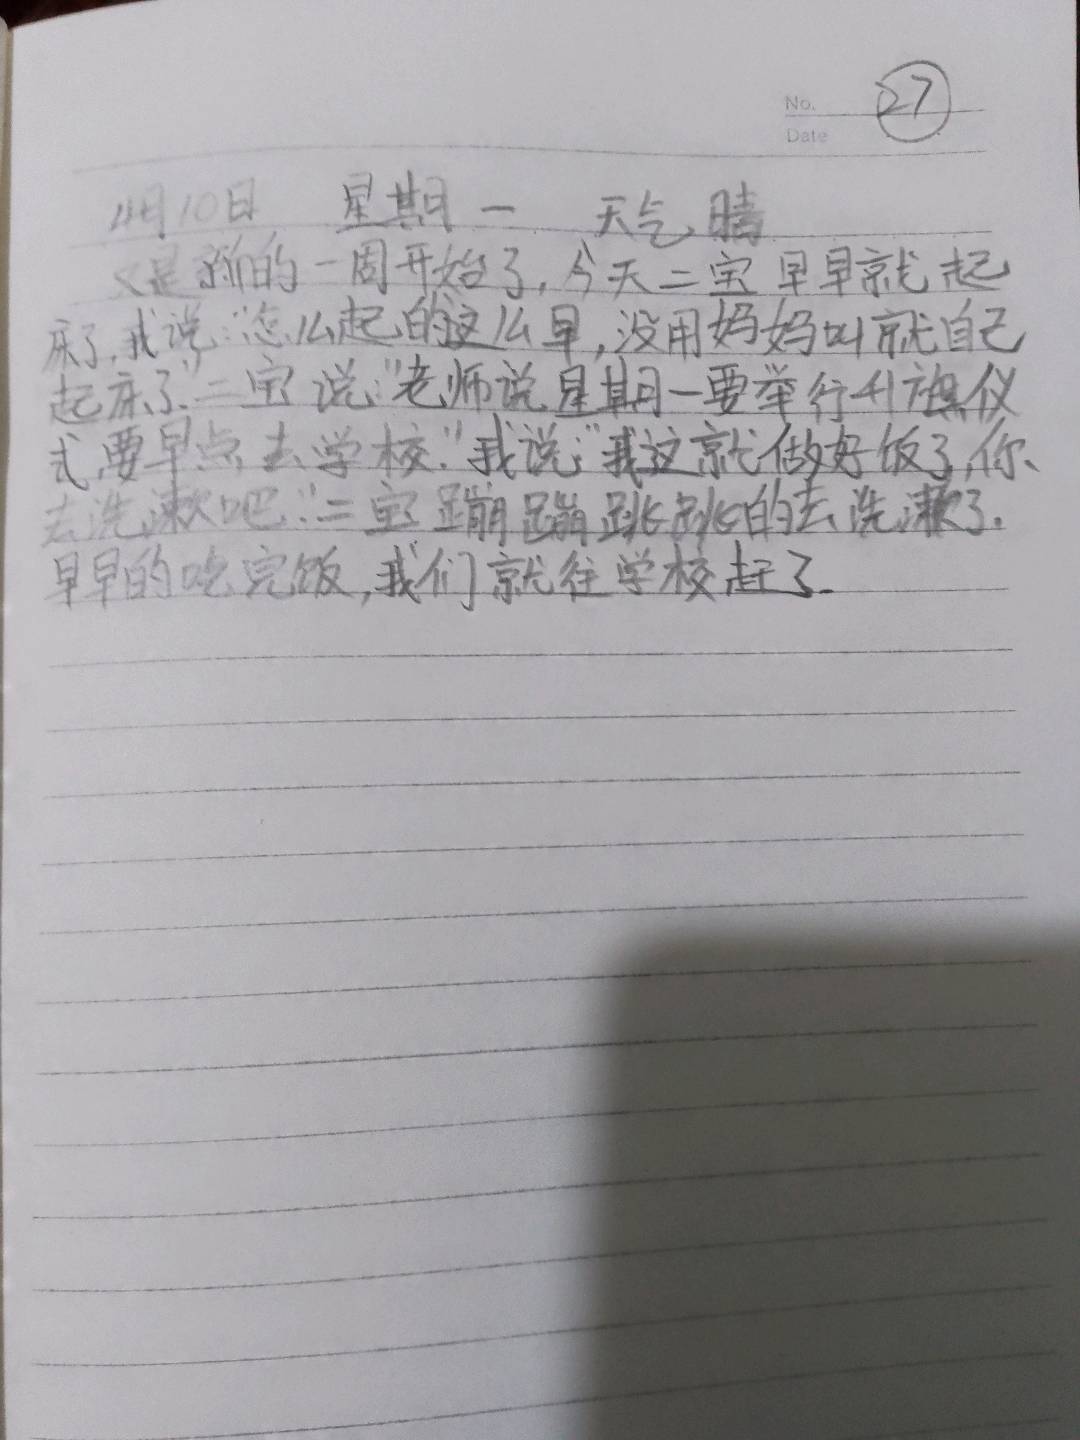 No. 27
Date
4月10日 星期一 天气晴
又是新的一周开始了,今天二宝早早就起
床了,我说:"怎么起的这么早,没用妈妈叫就自己
起床了"二宝说:"老师说星期一要举行升旗仪
式,要早点去学校."我说:"我这就做好饭了,你
去洗漱吧."二宝蹦蹦跳跳的去洗漱了.
早早的吃完饭,我们就往学校赶了.